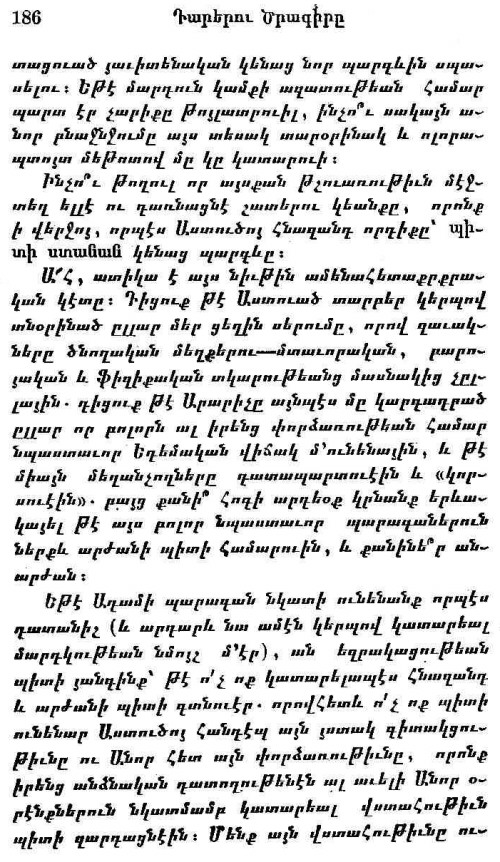 186 Դարերու Ծրագիրը
տացուած յաւիտենական կենաց նոր պարգևին սպա-
սելու։ Եթէ մարդուն կամքի ազատութեան համար
պարտ էր չարիքը թոյլատրուիլ, ինչո՞ւ սակայն ա-
նոր բնաջնջումը այս տեսակ տարօրինակ և ոլորա-
պտոյտ մեթոտով մը կը կատարուի։
Ինչո՞ւ թողուլ որ այսքան թշուառութիւն մէջ-
տեղ ելլէ ու դառնացնէ շատերու կեանքը, որոնք
ի վերջոյ, որպէս Աստուծոյ հնազանդ որդիքը՝ պի-
տի ստանան կենաց պարգևը։
Ա՜Հ, ատիկա է այս նիւթին ամենահետաքրքրա-
կան կէտը։ Դիցուք թէ Աստուած տարբեր կերպով
տնօրինած ըլլար մեր ցեղին սերումը, որով զաւակ-
ները ծնողական մեղքերու—մտաւորական, բարո-
յական և ֆիզիքական տկարութեանց մասնակից չըլ-
լային. դիցուք թէ Արարիչը այնպէս մը կարգադրած
ըլլար որ բոլորն ալ իրենց փորձառութեան համար
նպաստաւոր Եդեմական վիճակ մ՚ունենային, և թէ
միայն մեղանչողները դատապարտուէին և «կոր-
սուէին». բայց քանի՞ հոգի արդեօք կրնանք երևա-
կայել թէ այս բոլոր նպաստաւոր պարագաներուն
ներքև արժանի պիտի համարուին, և քանինե՞ր ան-
արժան։
Եթէ Ադամի պարագան նկատի ունենանք որպէս
դատանիչ (և արդարև նա ամէն կերպով կատարեալ
մարդկութեան նմոյշ մ՚էր), ան եզրակացութեան
պիտի յանգինք՝ թէ ո՛չ ոք կատարելապէս հնազանդ
և արժանի պիտի գտնուէր. որովհետև ո՛չ ոք պիտի
ունենար Աստուծոյ հանդէպ այն յստակ գիտակցու-
թիւնը ու Անոր հետ այն փորձառութիւնը, որոնք
իրենց անձնական դատողութենէն ալ աւելի Անոր օ-
րէնքներուն նկատմամբ կատարեալ վստահութիւն
պիտի զարգացնէին։ Մենք այն վստահութիւնը ու-